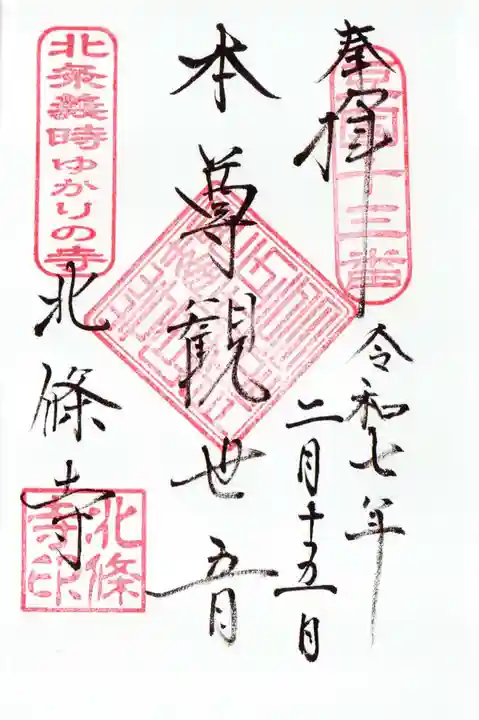 奉拝
令和七年
二月十五日
本尊観世音
北条義時ゆかりの寺
北條寺
北條寺印